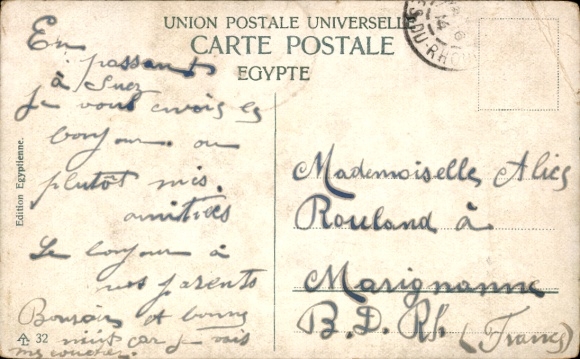 UNION POSTALE UNIVERSELLE
CARTE POSTALE
EGYPTE
En passant
à Suez
je vous envois le
bonjour ou
plutôt mes
amitiés
Le bonjour à
vos parents
Bonsoir et bonne
nuit car je vais
me coucher.
Mademoiselle Alice
Rouland à
Marignanne
B. D. Rh (France)
Edition Egyptienne.
32